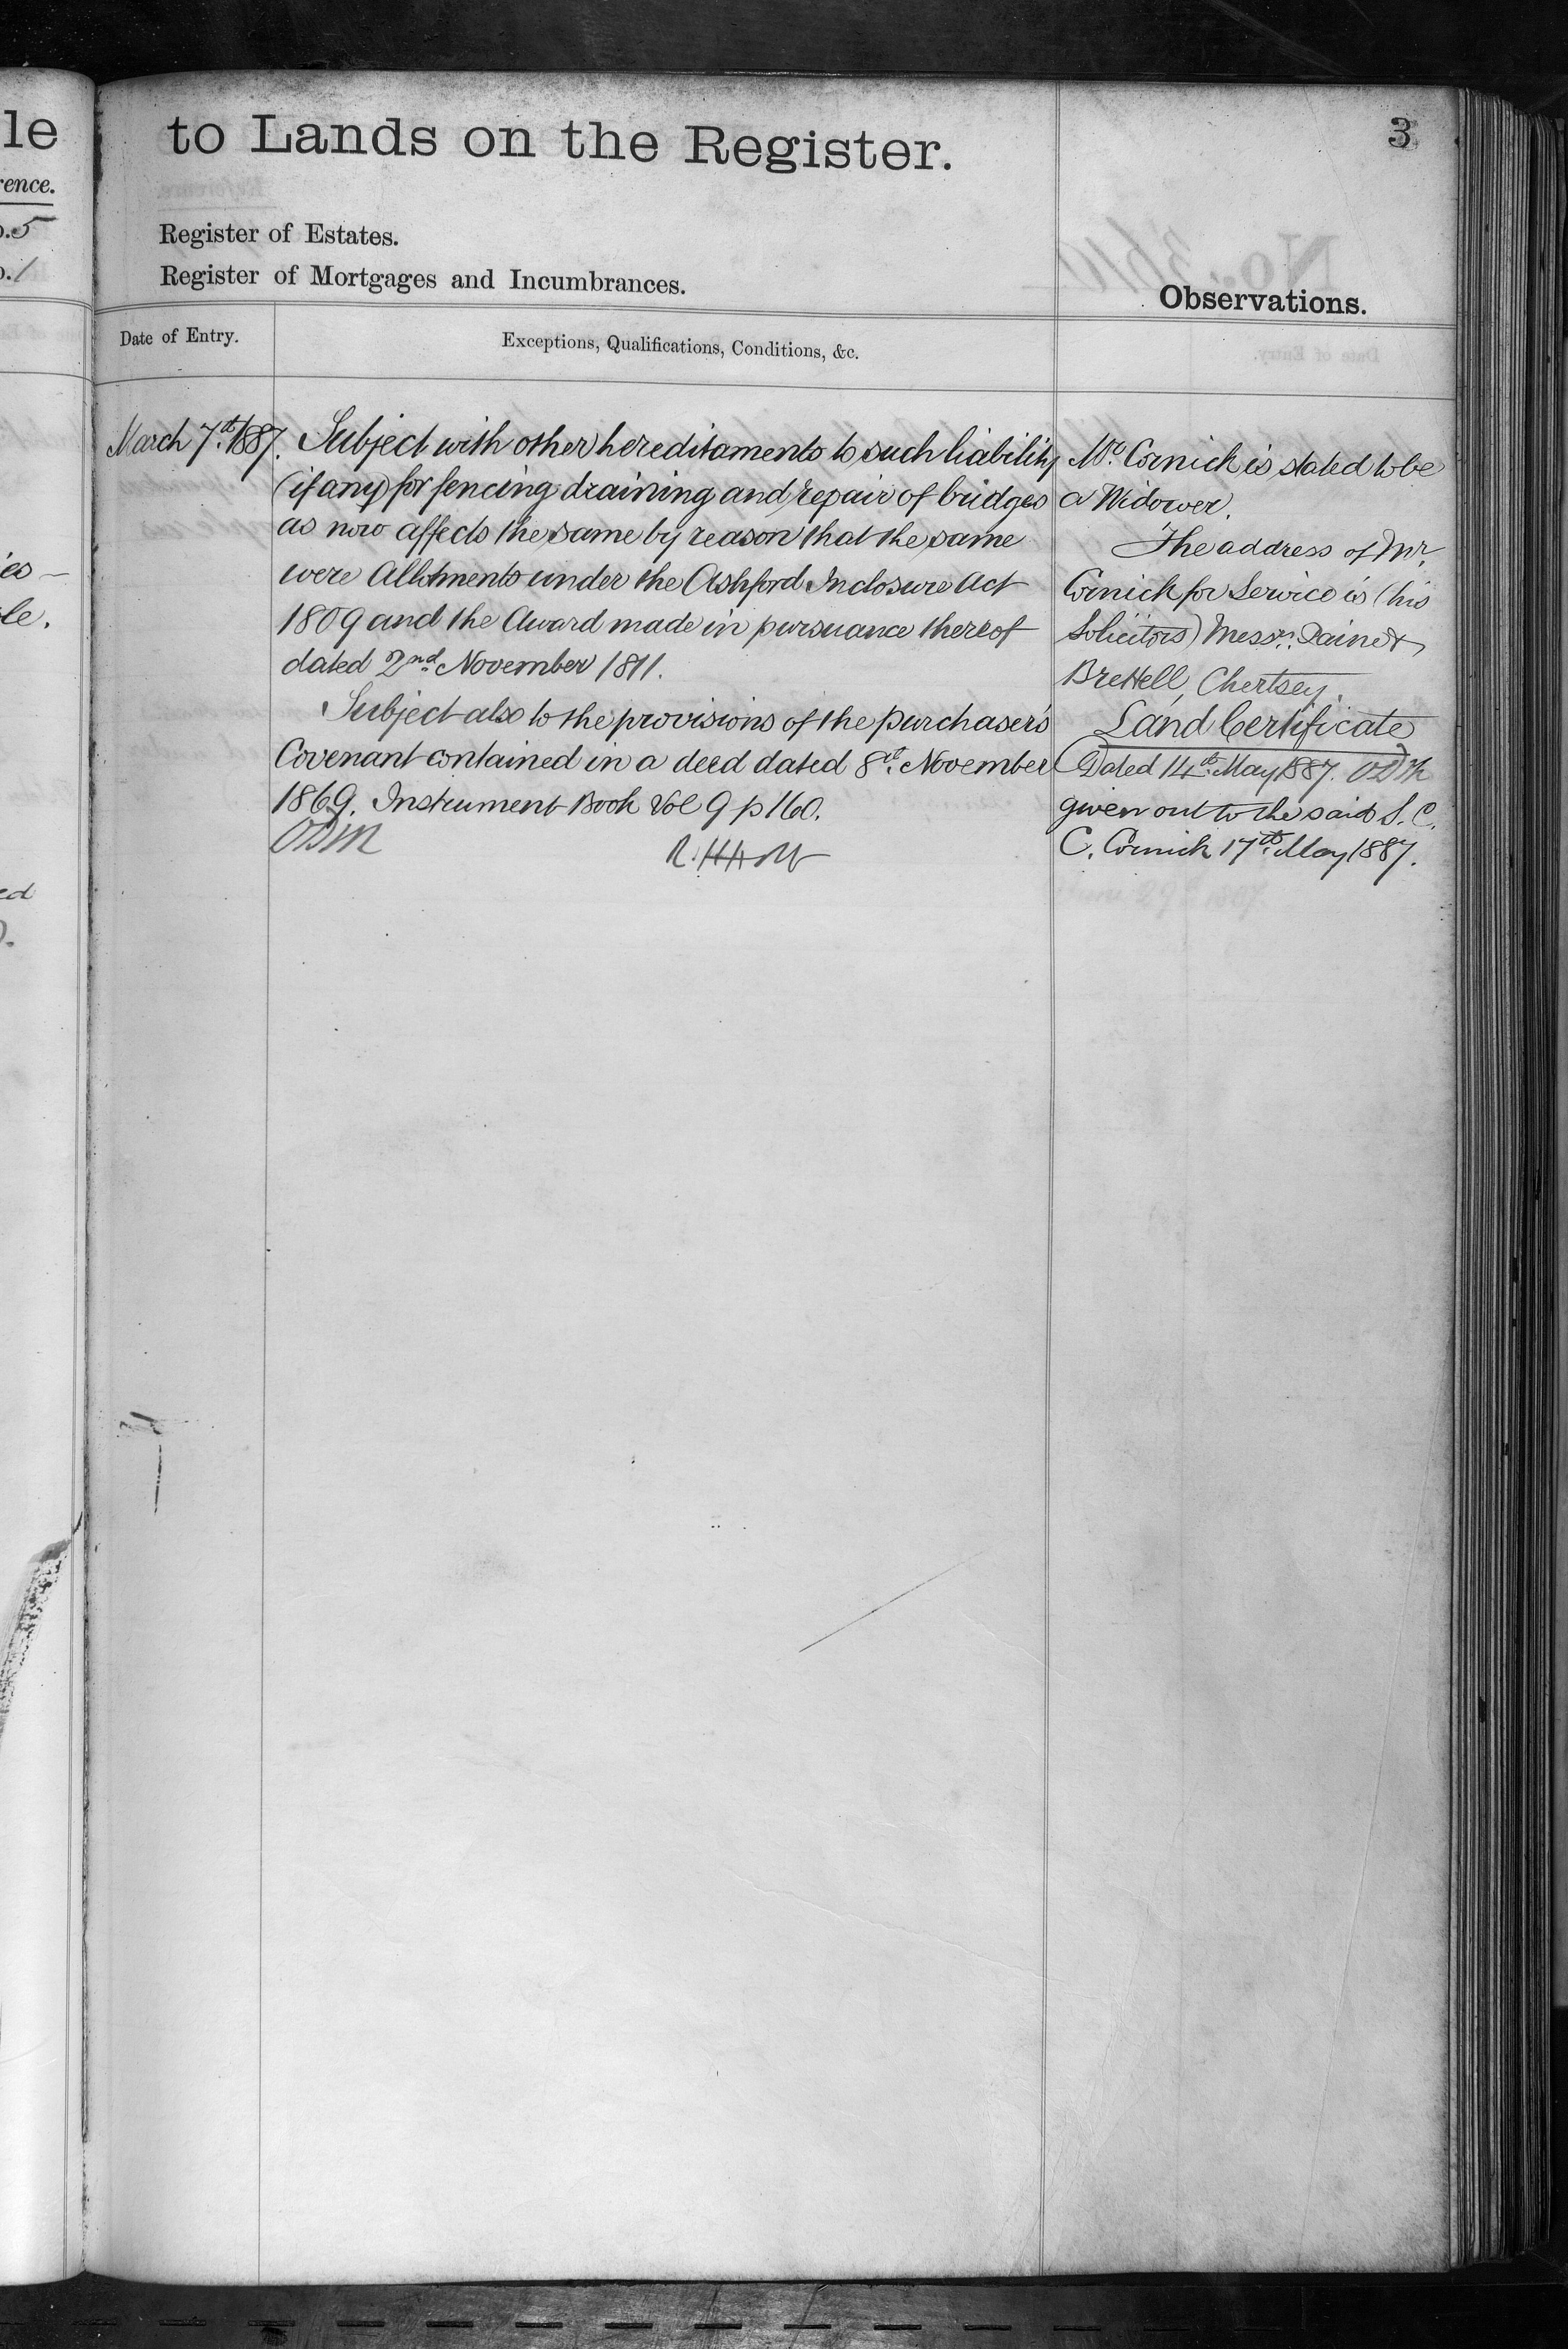 le
to Lands on the Register.
3
rence.
5
1
Register of Estates.
Register of Mortgages and Incumbrances.
Observations.
Date of Entry.
Exceptions, Qualifications, Conditions, &c.
March 7th 1887.
Subject with other hereditaments to such liability
(if any) for fencing draining and repair of bridges
as now affects the same by reason that the same
were Allotments under the Ashford Inclosure Act
1809 and the Award made in pursuance thereof
dated 2nd November 1811.
Subject also to the provisions of the purchaser's
Covenant contained in a deed dated 8th November
1869. Instrument Book Vol 9 p 160.
Mr Cornick is stated to be
a Widower.
The address of Mr
Cornick for Service is (his
Solicitors) Messrs. Paine &
Brettell, Chertsey.
Land Certificate
Dated 14th May 1887.
given out to the said S. C.
C. Cornick 17th May 1887.